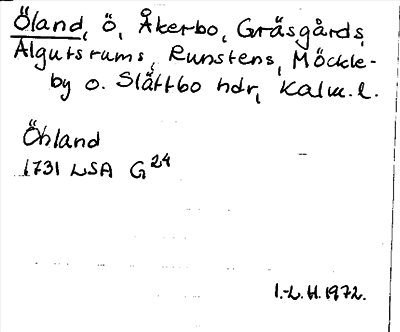 Öland, ö, Åkerbo, Gräsgårds,
Algutsrums, Runstens, Möckle-
by o. Slättbo hdr, Kalm. l.
Öhland
1731 LSA G24
I.-L. H. 1972.